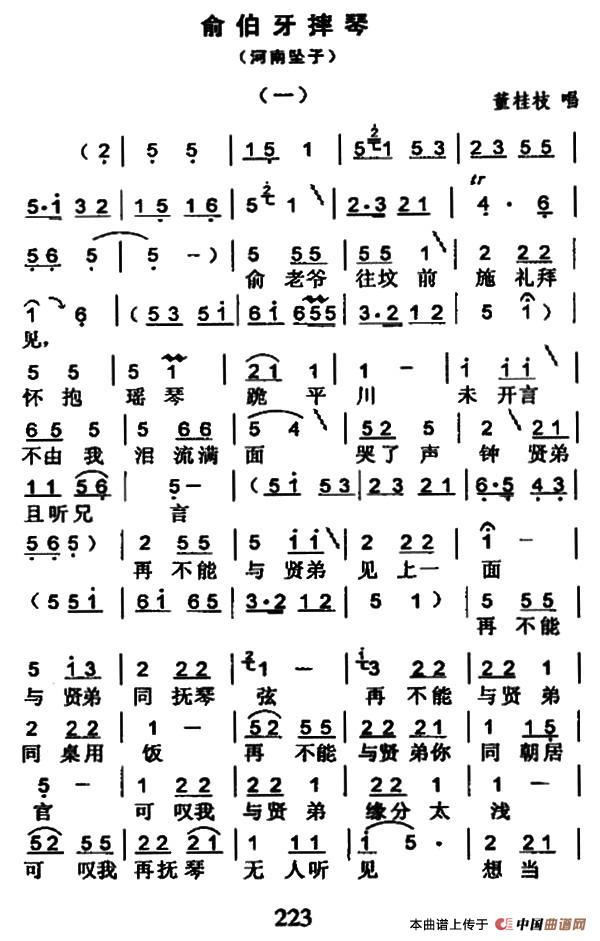 俞伯牙摔琴
（河南坠子）
（一）
董桂枝 唱
（2 | 5 5 | 15 1 | 5 1 | 51 53 | 23 55 |
5·i 32 | 15 16 | 5 1 | 2·3 21 | 4· 6 |
56 5 | 5 -） | 5 55 | 55 1 | 2 22 |
俞 老爷 往坟 前 施 礼拜
1 6 | （53 5i | 6i 655 | 3·2 12 | 5 i） |
见，
5 5 | 5 1 | 21 1 | 1 - | i ii |
怀 抱 瑶 琴 跪 平 川 未 开言
65 5 | 5 66 | 5 4 | 52 5 | 2 21 |
不由 我 泪 流满 面 哭了 声 钟 贤弟
11 56 | 5- | （5i 53 | 23 21 | 6·5 43 |
且听 兄 言
565） | 2 55 | 5 ii | 2 22 | i - |
再 不能 与 贤弟 见 上一 面
（55i | 6i 65 | 3·2 12 | 5 1） | 5 55 |
再 不能
5 i3 | 2 22 | 1 - | 3 22 | 22 1 |
与 贤弟 同 抚琴 弦 再 不能 与贤 弟
2 22 | 1 - | 52 55 | 22 22 | 1 15 |
同 桌用 饭 再 不能 与贤 弟你 同 朝居
5 - | 1 22 | 22 1 | 22 2 | 1 - |
官 可 叹我 与贤 弟 缘分 太 浅
52 55 | 22 21 | 1 11 | i 5· | 2 21 |
可 叹我 再抚 琴 无 人听 见 想 当
223
本曲谱上传于 中国曲谱网